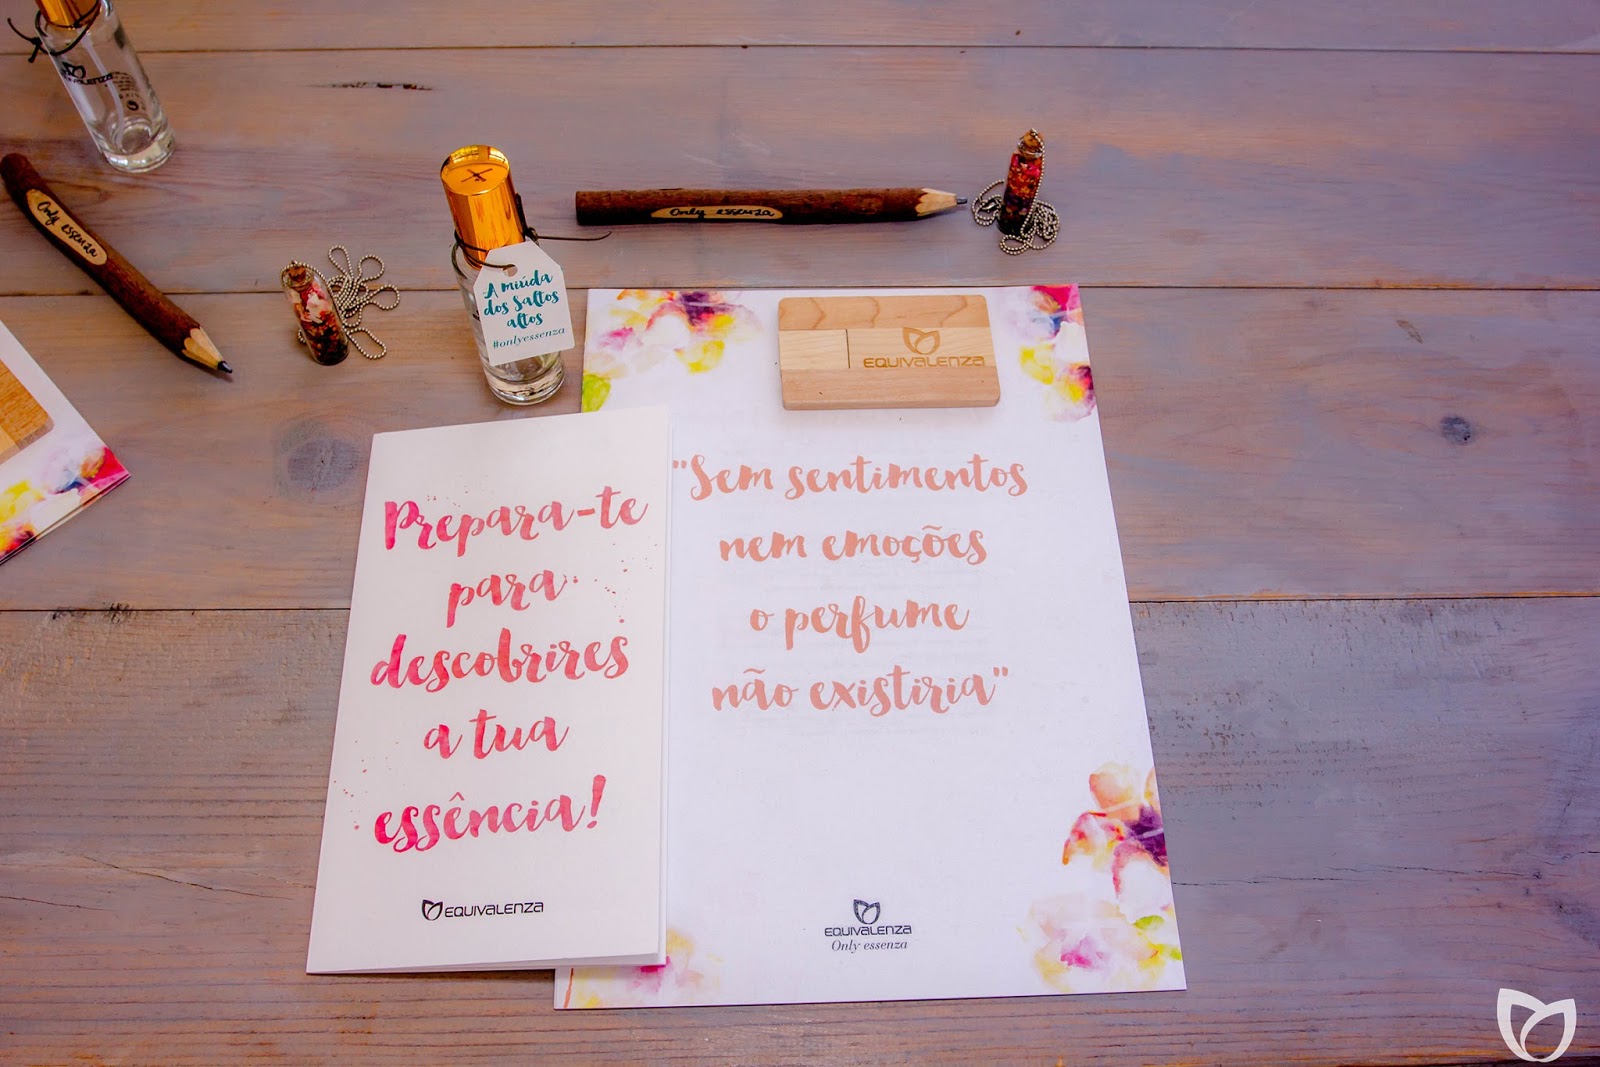 EQUIVALENZA
Only essenza
Only essenza
A miúda
dos Saltos
altos
#onlyessenza
EQUIVALENZA
Prepara-te
para
descobrires
a tua
essência!
EQUIVALENZA
"Sem sentimentos
nem emoções
o perfume
não existiria"
EQUIVALENZA
Only essenza